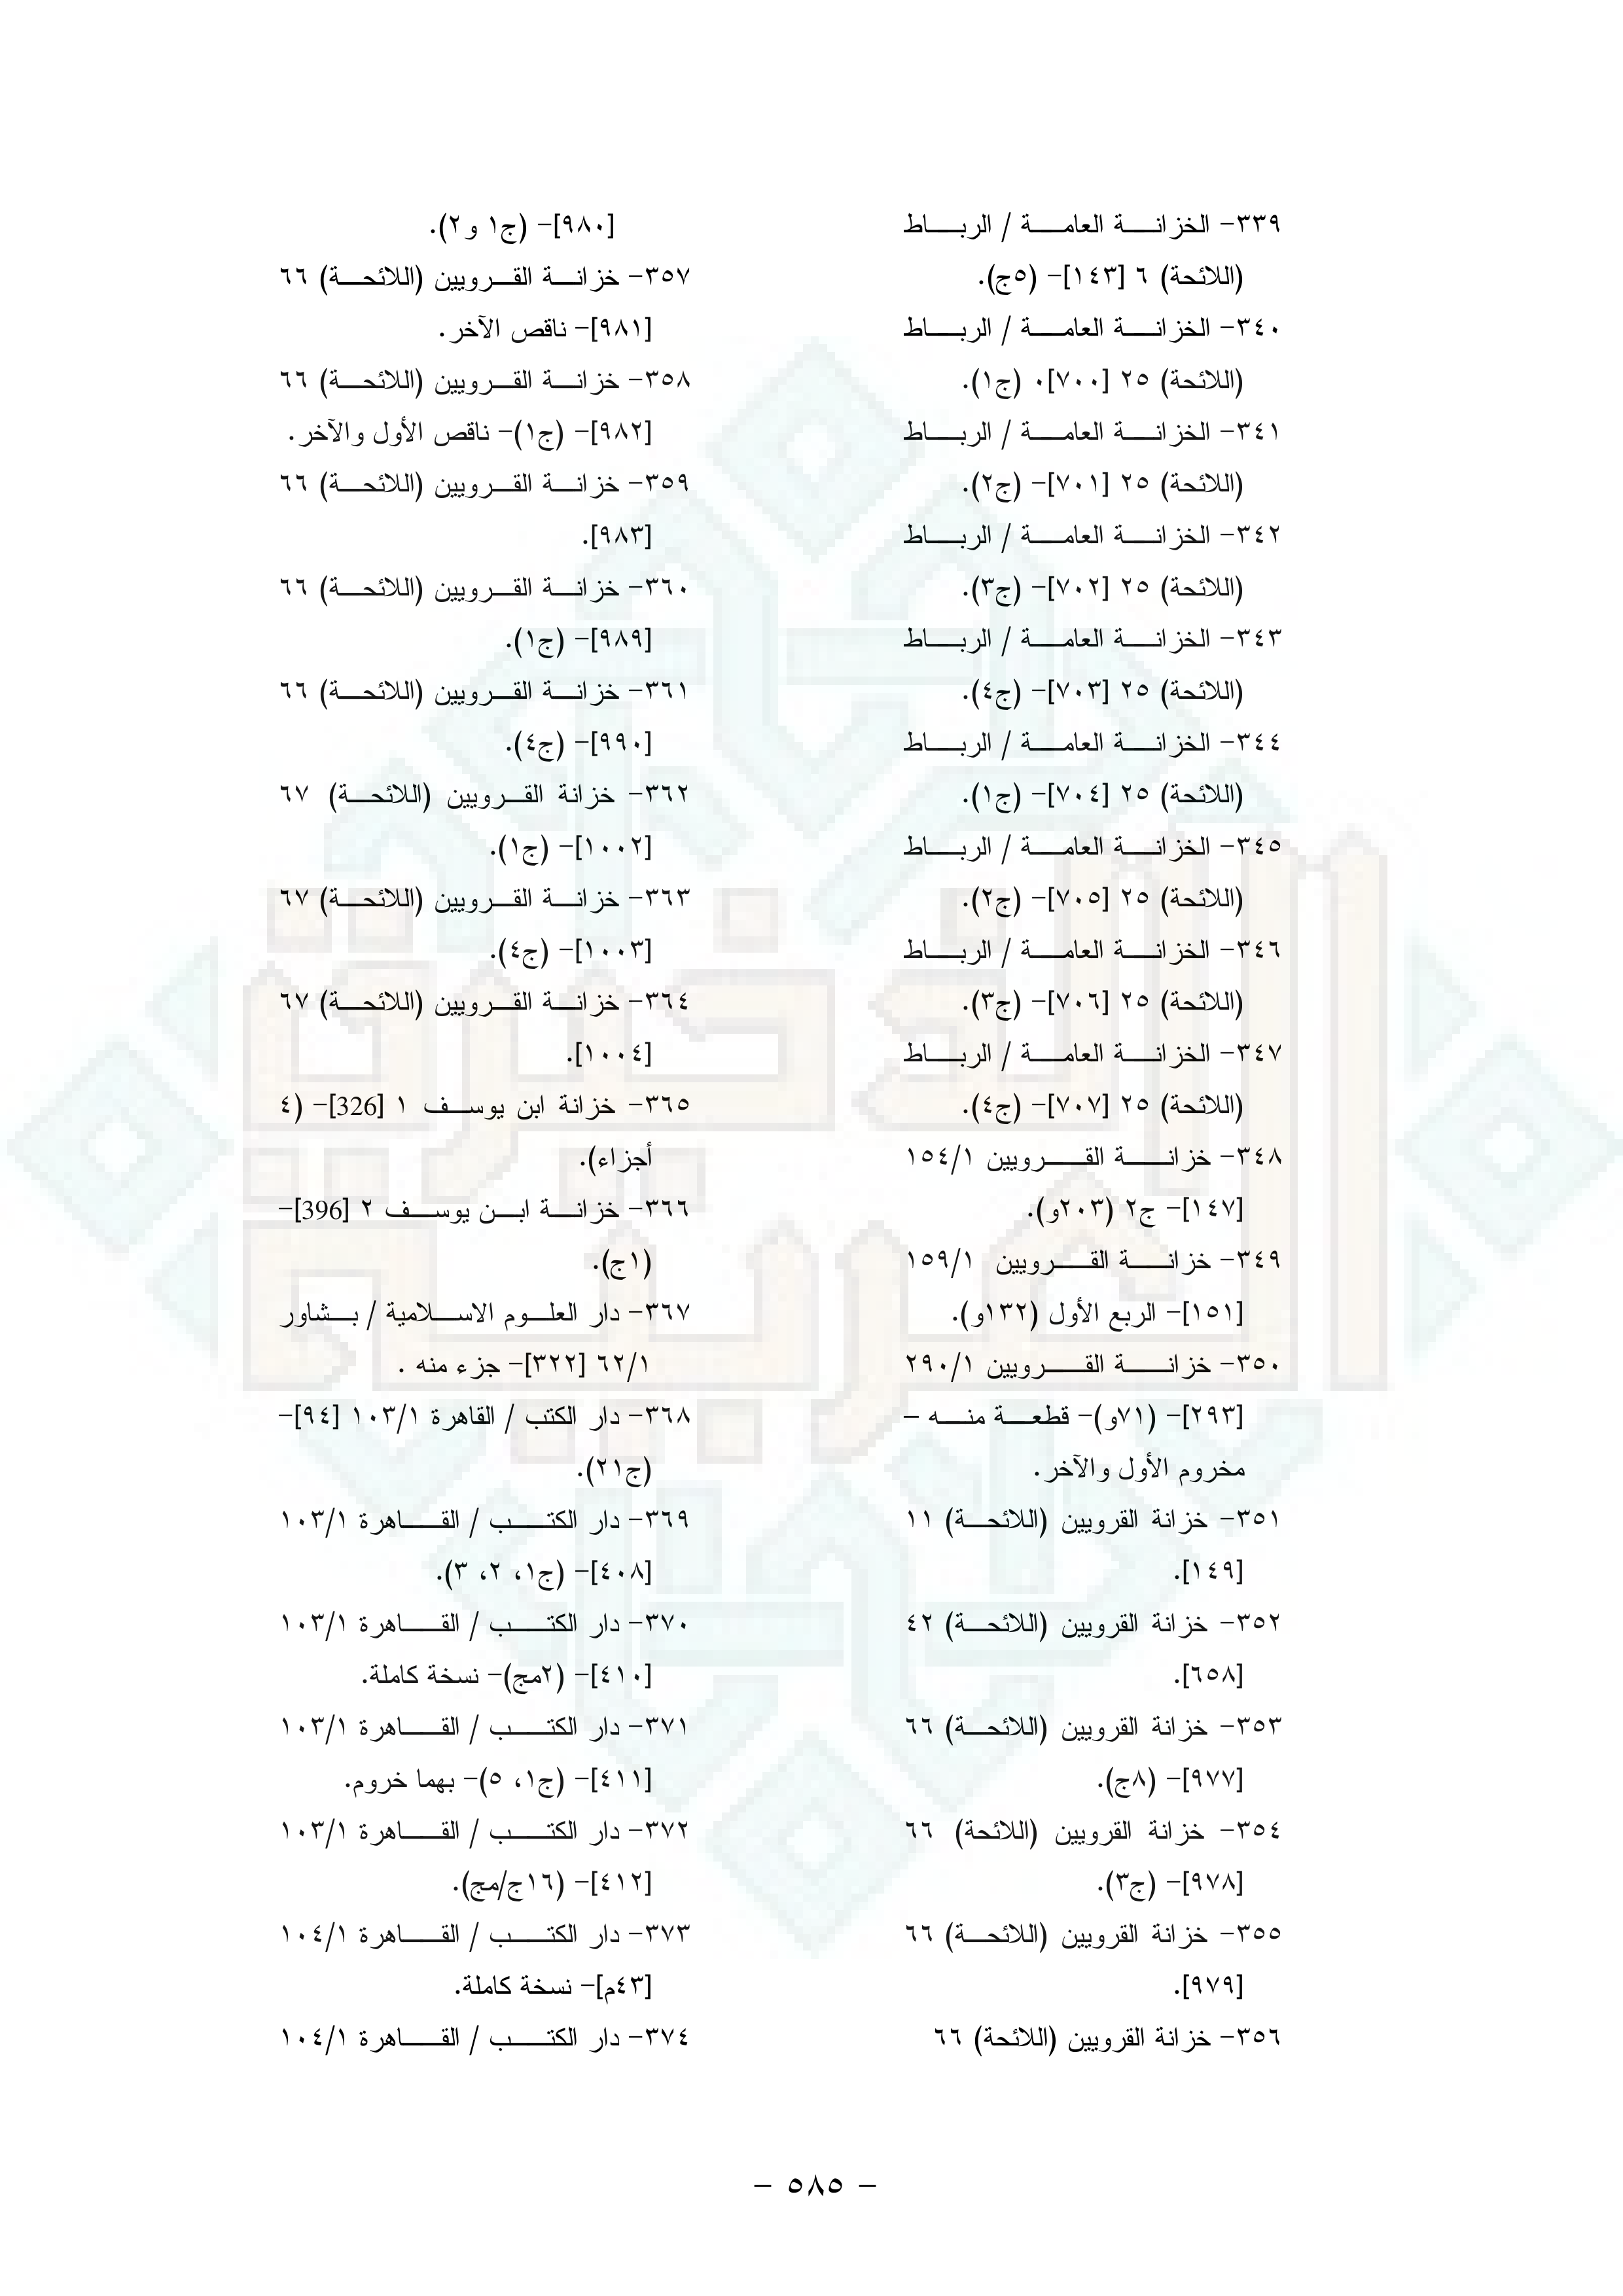 ٣٣٩- الخزانة العامة / الرباط
(اللائحة) ٦ [١٤٣]- (٥ج).
٣٤٠- الخزانة العامة / الرباط
(اللائحة) ٢٥ [٧٠٠]٠ (ج١).
٣٤١- الخزانة العامة / الرباط
(اللائحة) ٢٥ [٧٠١]- (ج٢).
٣٤٢- الخزانة العامة / الرباط
(اللائحة) ٢٥ [٧٠٢]- (ج٣).
٣٤٣- الخزانة العامة / الرباط
(اللائحة) ٢٥ [٧٠٣]- (ج٤).
٣٤٤- الخزانة العامة / الرباط
(اللائحة) ٢٥ [٧٠٤]- (ج١).
٣٤٥- الخزانة العامة / الرباط
(اللائحة) ٢٥ [٧٠٥]- (ج٢).
٣٤٦- الخزانة العامة / الرباط
(اللائحة) ٢٥ [٧٠٦]- (ج٣).
٣٤٧- الخزانة العامة / الرباط
(اللائحة) ٢٥ [٧٠٧]- (ج٤).
٣٤٨- خزانة القرويين ١/١٥٤
[١٤٧]- ج٢ (٢٠٣و).
٣٤٩- خزانة القرويين ١/١٥٩
[١٥١]- الربع الأول (١٣٢و).
٣٥٠- خزانة القرويين ١/٢٩٠
[٢٩٣]- (٧١و)- قطعة منه -
مخروم الأول والآخر.
٣٥١- خزانة القرويين (اللائحة) ١١
[١٤٩].
٣٥٢- خزانة القرويين (اللائحة) ٤٢
[٦٥٨].
٣٥٣- خزانة القرويين (اللائحة) ٦٦
[٩٧٧]- (٨ج).
٣٥٤- خزانة القرويين (اللائحة) ٦٦
[٩٧٨]- (ج٣).
٣٥٥- خزانة القرويين (اللائحة) ٦٦
[٩٧٩].
٣٥٦- خزانة القرويين (اللائحة) ٦٦
[٩٨٠]- (ج١ و٢).
٣٥٧- خزانة القرويين (اللائحة) ٦٦
[٩٨١]- ناقص الآخر.
٣٥٨- خزانة القرويين (اللائحة) ٦٦
[٩٨٢]- (ج١)- ناقص الأول والآخر.
٣٥٩- خزانة القرويين (اللائحة) ٦٦
[٩٨٣].
٣٦٠- خزانة القرويين (اللائحة) ٦٦
[٩٨٩]- (ج١).
٣٦١- خزانة القرويين (اللائحة) ٦٦
[٩٩٠]- (ج٤).
٣٦٢- خزانة القرويين (اللائحة) ٦٧
[١٠٠٢]- (ج١).
٣٦٣- خزانة القرويين (اللائحة) ٦٧
[١٠٠٣]- (ج٤).
٣٦٤- خزانة القرويين (اللائحة) ٦٧
[١٠٠٤].
٣٦٥- خزانة ابن يوسف ١ [326]- (٤
أجزاء).
٣٦٦- خزانة ابن يوسف ٢ [396]-
(١ج).
٣٦٧- دار العلوم الاسلامية / بشاور
١/٦٢ [٣٢٢]- جزء منه .
٣٦٨- دار الكتب / القاهرة ١/١٠٣ [٩٤]-
(ج٢١).
٣٦٩- دار الكتب / القاهرة ١/١٠٣
[٤٠٨]- (ج١، ٢، ٣).
٣٧٠- دار الكتب / القاهرة ١/١٠٣
[٤١٠]- (٢مج)- نسخة كاملة.
٣٧١- دار الكتب / القاهرة ١/١٠٣
[٤١١]- (ج١، ٥)- بهما خروم.
٣٧٢- دار الكتب / القاهرة ١/١٠٣
[٤١٢]- (١٦ج/مج).
٣٧٣- دار الكتب / القاهرة ١/١٠٤
[٤٣م]- نسخة كاملة.
٣٧٤- دار الكتب / القاهرة ١/١٠٤
- ٥٨٥ -